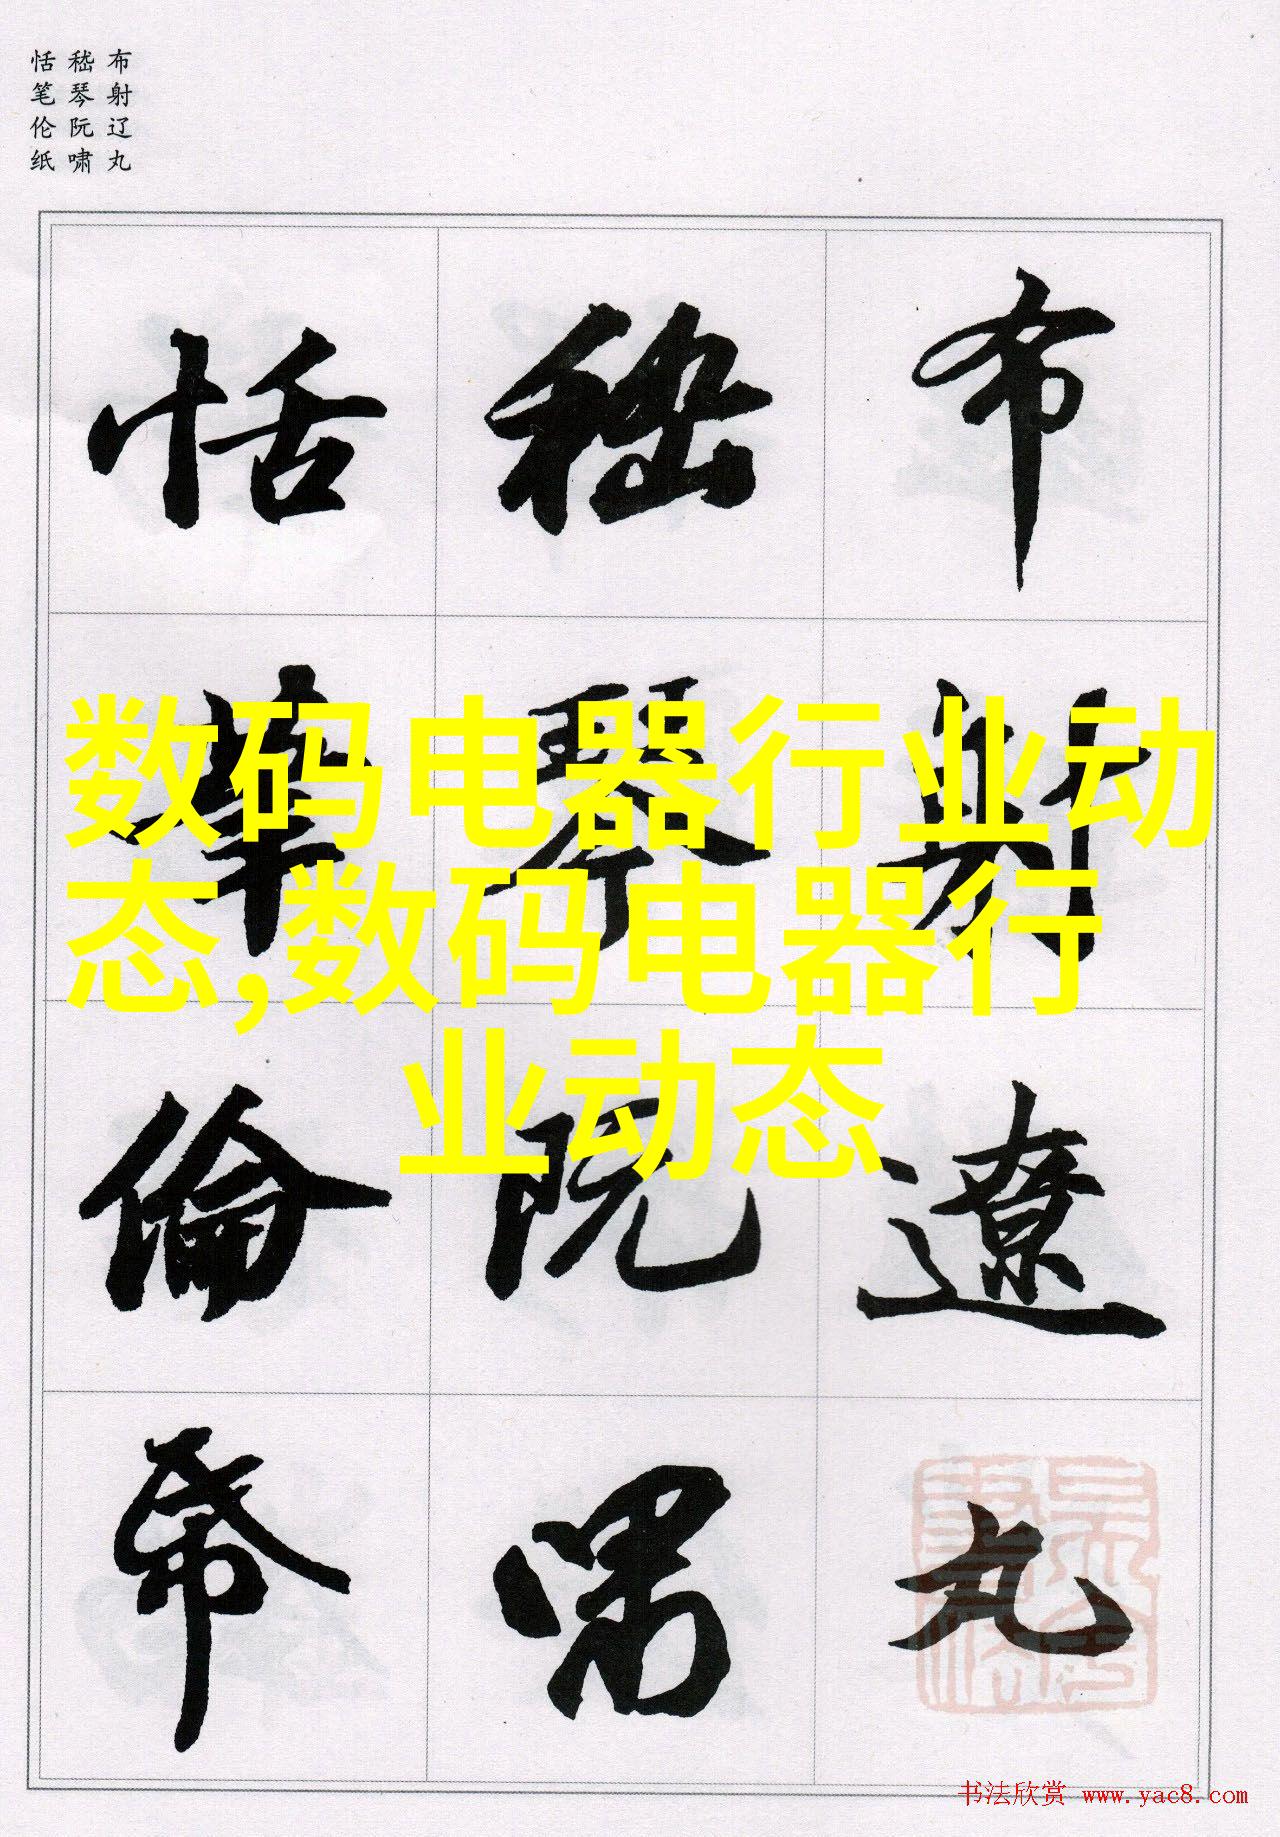 布射辽丸
嵇琴阮啸
恬笔伦纸
布射遼丸
嵇琴阮嘯
恬筆倫帋
数码电器行业动
态,数码电器行
业动态
书法欣赏 www.yac8.com